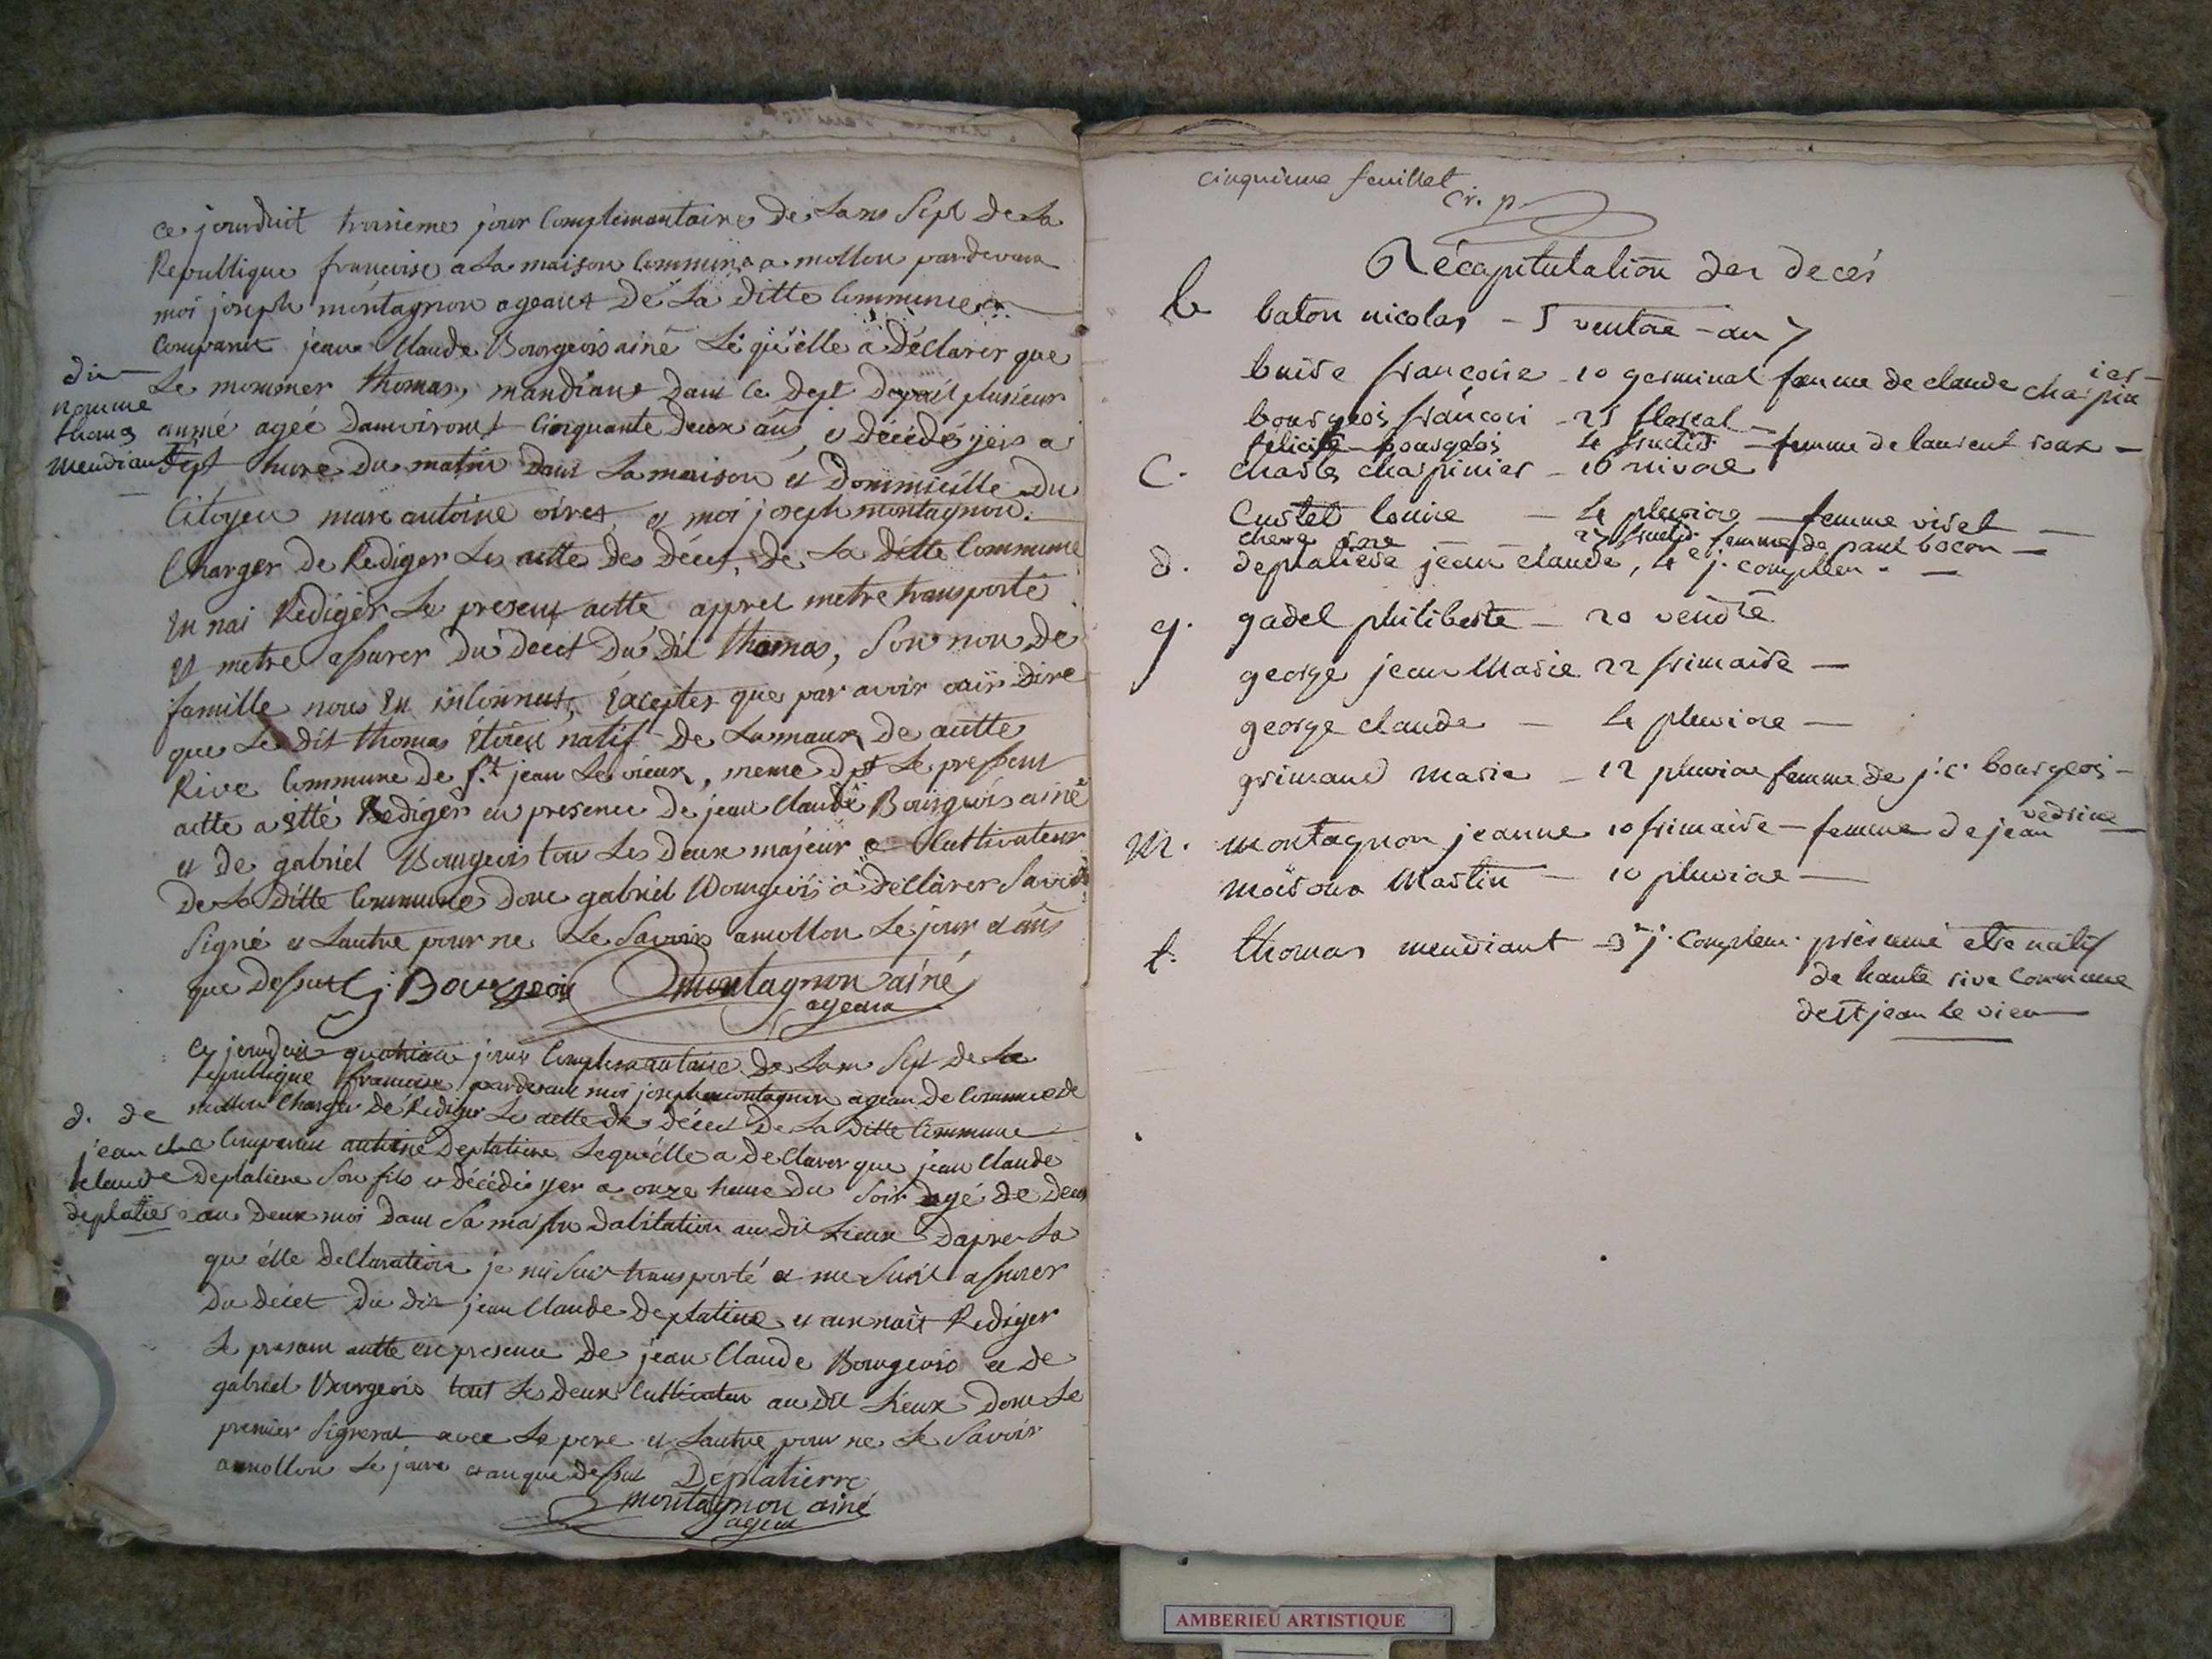 ce jourduit troisieme jour Complementaire de Lans Sept de La
Republique francoise a La maison Commune a mollon pardevant
moi joseph montagnon ageant de La ditte Commune
Comparut jean Claude Bourgeois ainé Lequelle a déClarer que
Le nommer thomas, mandiant dans Ce dept depuit plusieur
année ageé danviront Cinquante deux ans, et décédé yers a
Sept hure du matin dans La maison et dommicille du
Citoyen marc antoine et moi joseph montagnon
Charger de Rediger Les actte des décet, de La ditte Commune
En nai Rediger Le present actte appret metre transporté
Et metre assurer du décet du dit thomas, Son non de
famille nous En inConnut, Excepter que par avoir ouïr dire
que Le dit thomas natif de Lamaux de autte
Rive Commune de St. jean Le vieux, meme dpt Le present
actte a Etté Rediger en presence de jean Claude Bourgeois ainé
et de gabriel Bourgeois tou Les deux majeur Cultivateur
De La ditte Commune donc gabriel Bourgeois a déClarer Savoir
Signé et Lautre pour ne Le Savoir amollon Le jour et ans
que dessut C j. Bourgeois montagnon ainé
ageant
du
nommé
thomas
mendiant
Ce jourduit quatrieme jour Complementaire de Lans Sept de La
republique francoise pardevant moi joseph montagnon ageant de Commune de
mollon Charger de Rediger Le actte de décet De La ditte Commune
a Comparut antoine Deplatiere Lequelle a deClarer que jean Claude
Deplatiere Son fils et décédé yer a onze heure du Soir agé de deux
an deux moi dans Sa maison dabitation au dit Lieux Dapre La
qu elle deClaration je my Suis transporté et me Suit assurer
du décet du dit jean Claude Deplatiere et en nait Rediger
Le presant actte en presence de jean Claude Bourgeois et de
gabriel Bourgeois tout Les deux Cultivateur au dit Lieux donc Le
premier Signerat avec Le pere et Lautre pour ne Le Savoir
amollon Le jour et an que dessut Déplatierre
montagnon ainé
ageant
d. de
jean
claude
deplatier
cinquieme feuillet
Récapitulation der décés
b baton nicolas - 5 ventose - an 7
buire francoise - 10 germinal femme de claude charpin
ier -
bourgeois francois - 25 floreal -
félicité bourgeois 4 fructid - femme de laurent roux -
C. charles charpinier - 16 nivose
Custet louise - 4 pluviose - femme viret -
femme de paul bocon -
d. deplatiere jean claude, 4e j. complem. -
g. gadel philiberte - 20 vendre
george jean Marie 22 frimaire -
george claude - 4 pluviose -
grimaud marie - 12 pluviose femme de j. c. bourgeois -
m. montagnon jeanne 10 frimaire - femme de jean
vedrine
Martin - 10 pluviose -
t. thomas mendiant - 3e j. Complem. présumé etre natif
de haute rive Commune
de st jean le vieux
AMBERIEU ARTISTIQUE